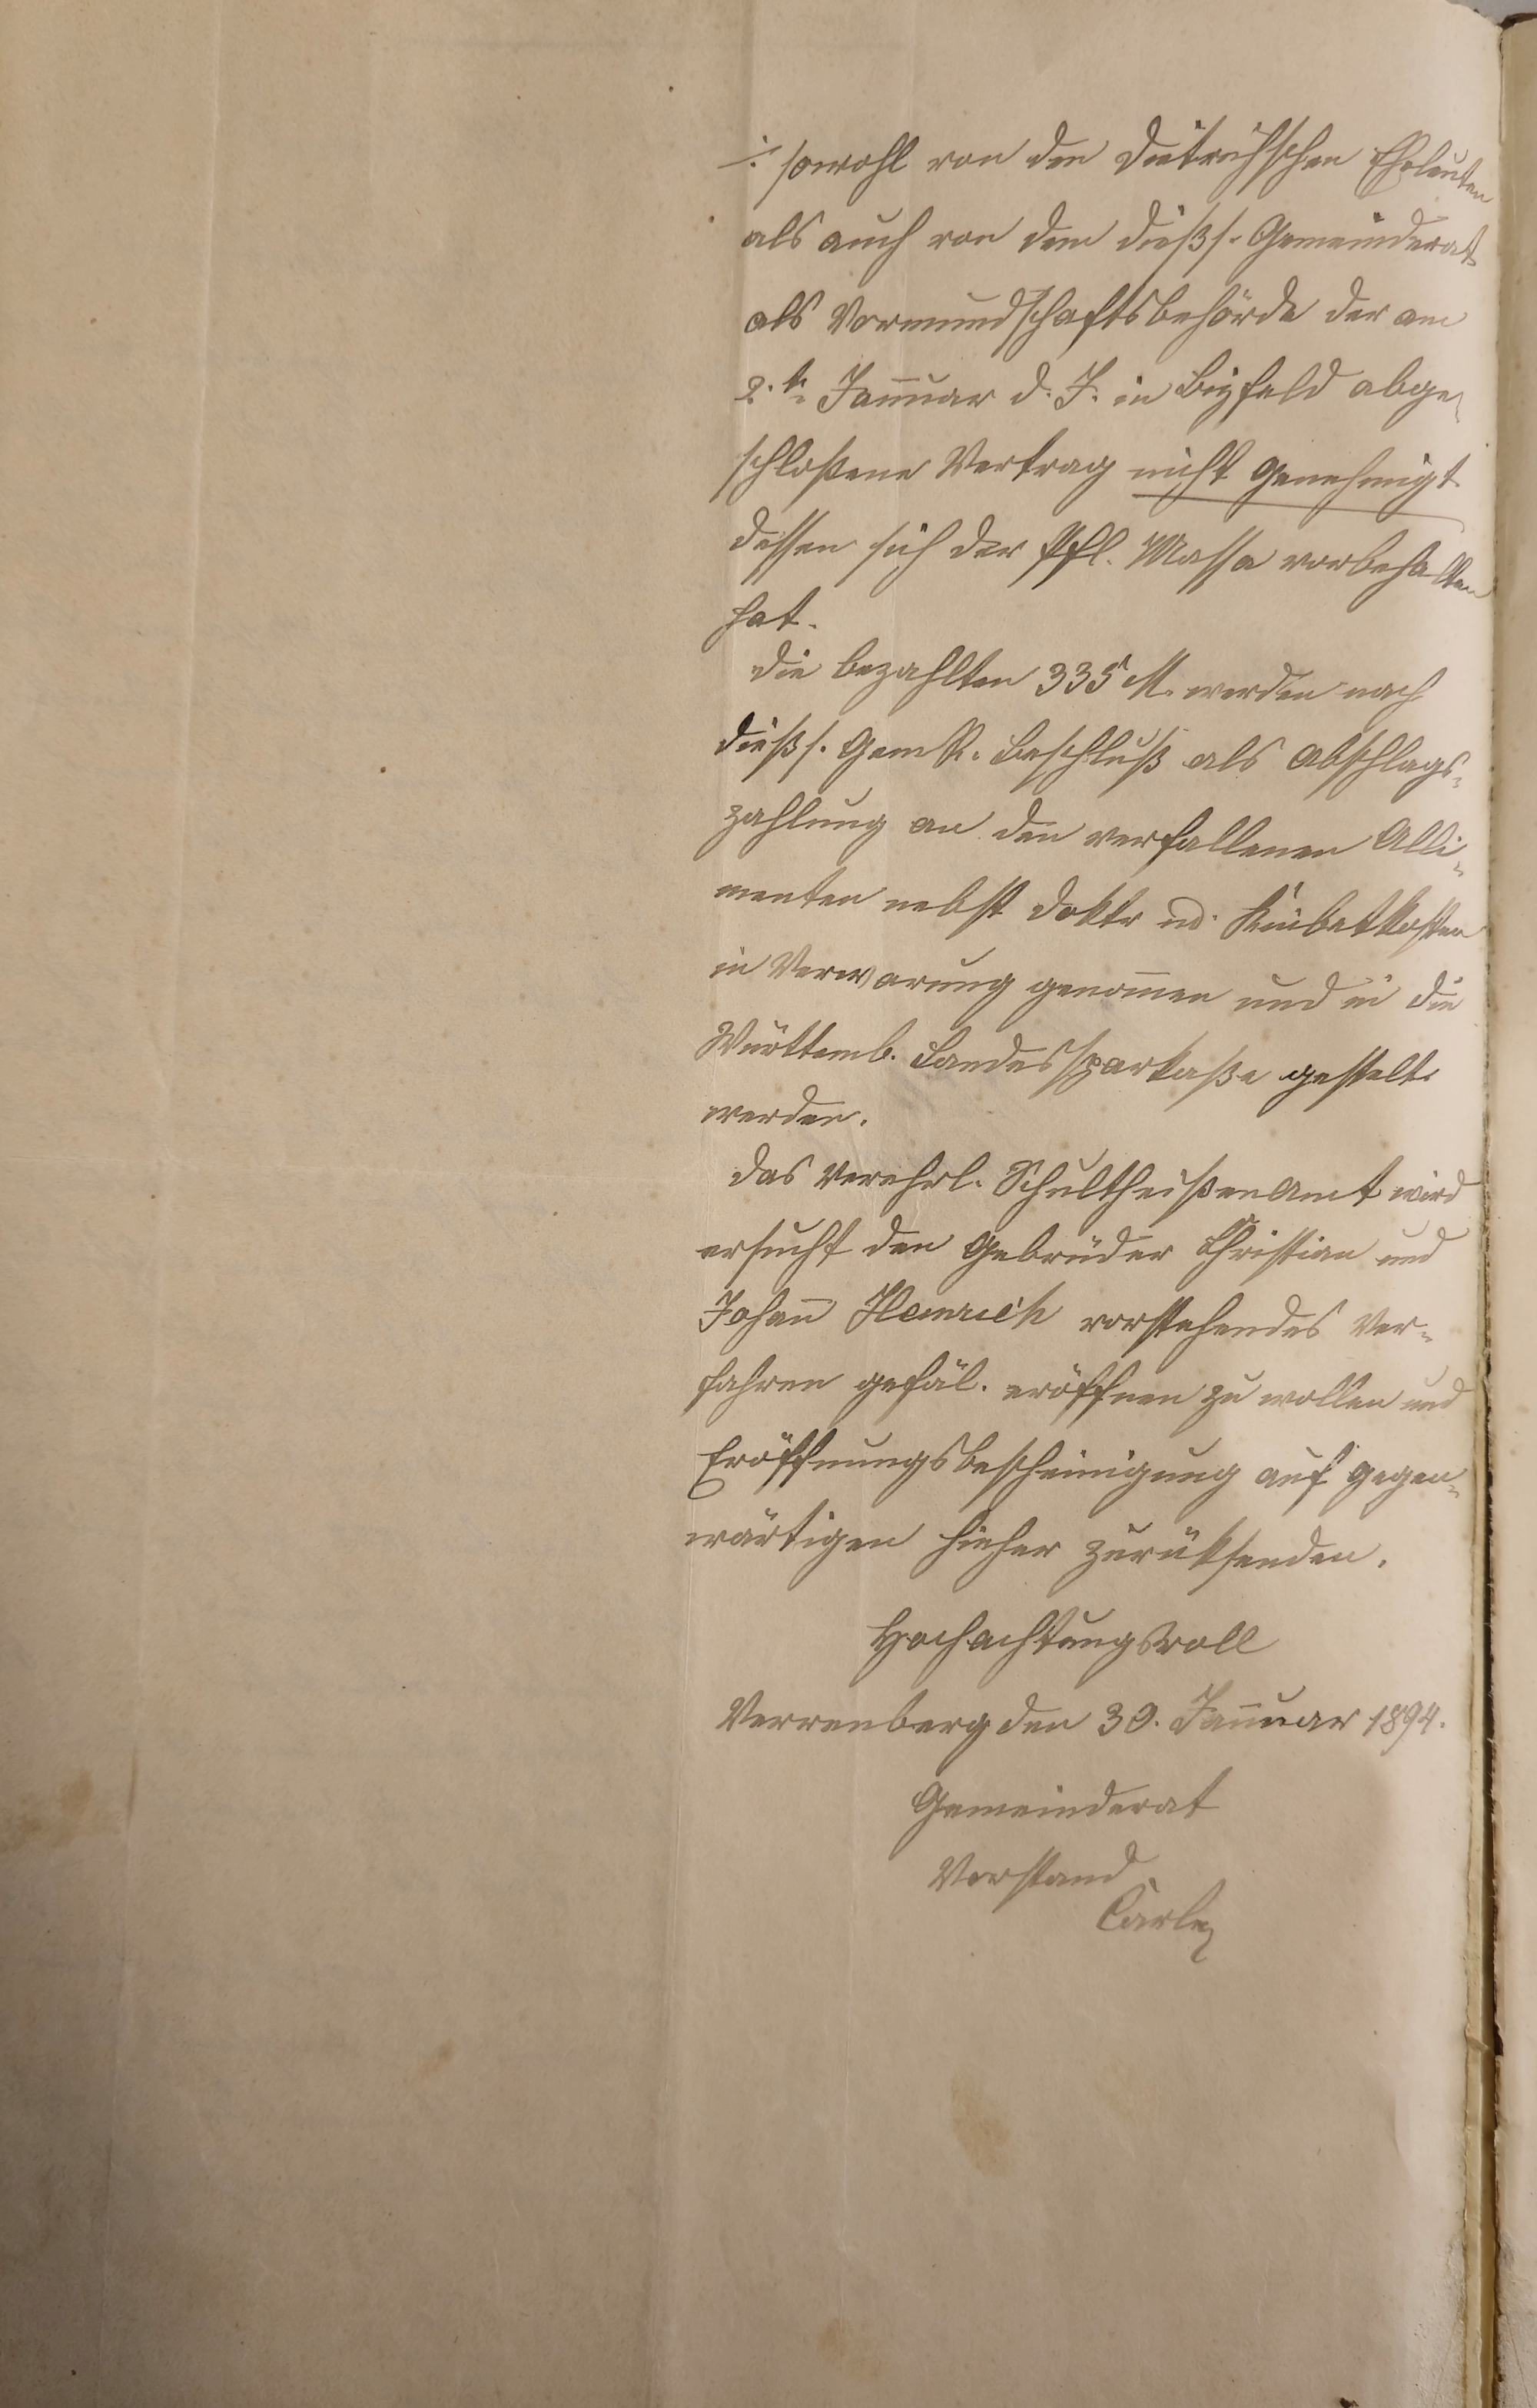 ./. sowohl von den Dietrichschen Eheleuten
als auch von dem dießs. Gemeinderat
als Vormundschaftsbehörde der am
2.te. Januar d. J. in Bizfeld abge-
schloßene Vertrag nicht genehmigt
dessen sich der Pfl. Massa vorbehalten
hat.
Die bezahlten 335 M. werden nach
dießs. Gem R. Beschluß als Abschlags-
zahlung an den verfallenen Alli-
menten nebst Doktr ud. Kinbetkosten
in Verwarung genommen und in die
Württemb. Landessparkaße gestelt
werden.
Das Verehrl. Schultheißenamt wird
ersucht den Gebrüder Christian und
Johann Heinrich vorstehendes Ver-
fahren gefäl. eröffnen zu wollen und
Eröffnungsbescheinigung auf gegen-
wärtigen hieher zurüksenden.
Hochachtungsvoll
Verrenberg den 30. Januar 1894.
Gemeinderat
Vorstand
Carle